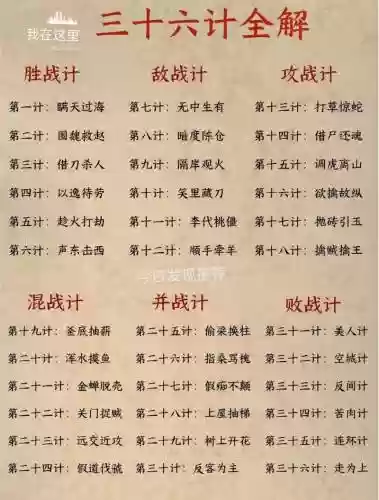 我在这里
三十六计全解
胜战计
第一计：瞒天过海
第二计：围魏救赵
第三计：借刀杀人
第四计：以逸待劳
第五计：趁火打劫
第六计：声东击西
敌战计
第七计：无中生有
第八计：暗度陈仓
第九计：隔岸观火
第十计：笑里藏刀
第十一计：李代桃僵
第十二计：顺手牵羊
攻战计
第十三计：打草惊蛇
第十四计：借尸还魂
第十五计：调虎离山
第十六计：欲擒故纵
第十七计：抛砖引玉
第十八计：擒贼擒王
混战计
第十九计：釜底抽薪
第二十计：浑水摸鱼
第二十一计：金蝉脱壳
第二十二计：关门捉贼
第二十三计：远交近攻
第二十四计：假道伐虢
并战计
第二十五计：偷梁换柱
第二十六计：指桑骂槐
第二十七计：假痴不癫
第二十八计：上屋抽梯
第二十九计：树上开花
第三十计：反客为主
败战计
第三十一计：美人计
第三十二计：空城计
第三十三计：反间计
第三十四计：苦肉计
第三十五计：连环计
第三十六计：走为上